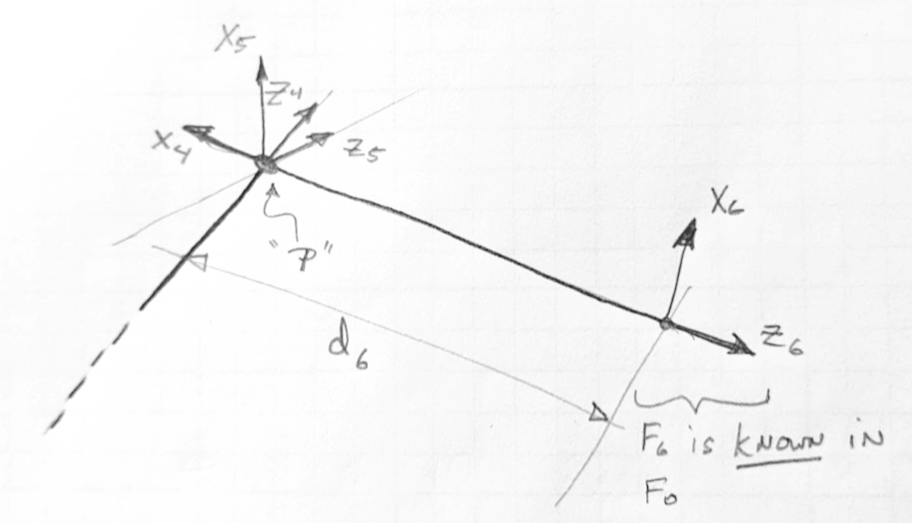 X5
Z4
X4
Z5
"P"
X6
d6
Z6
F6 is KNOWN IN
F0